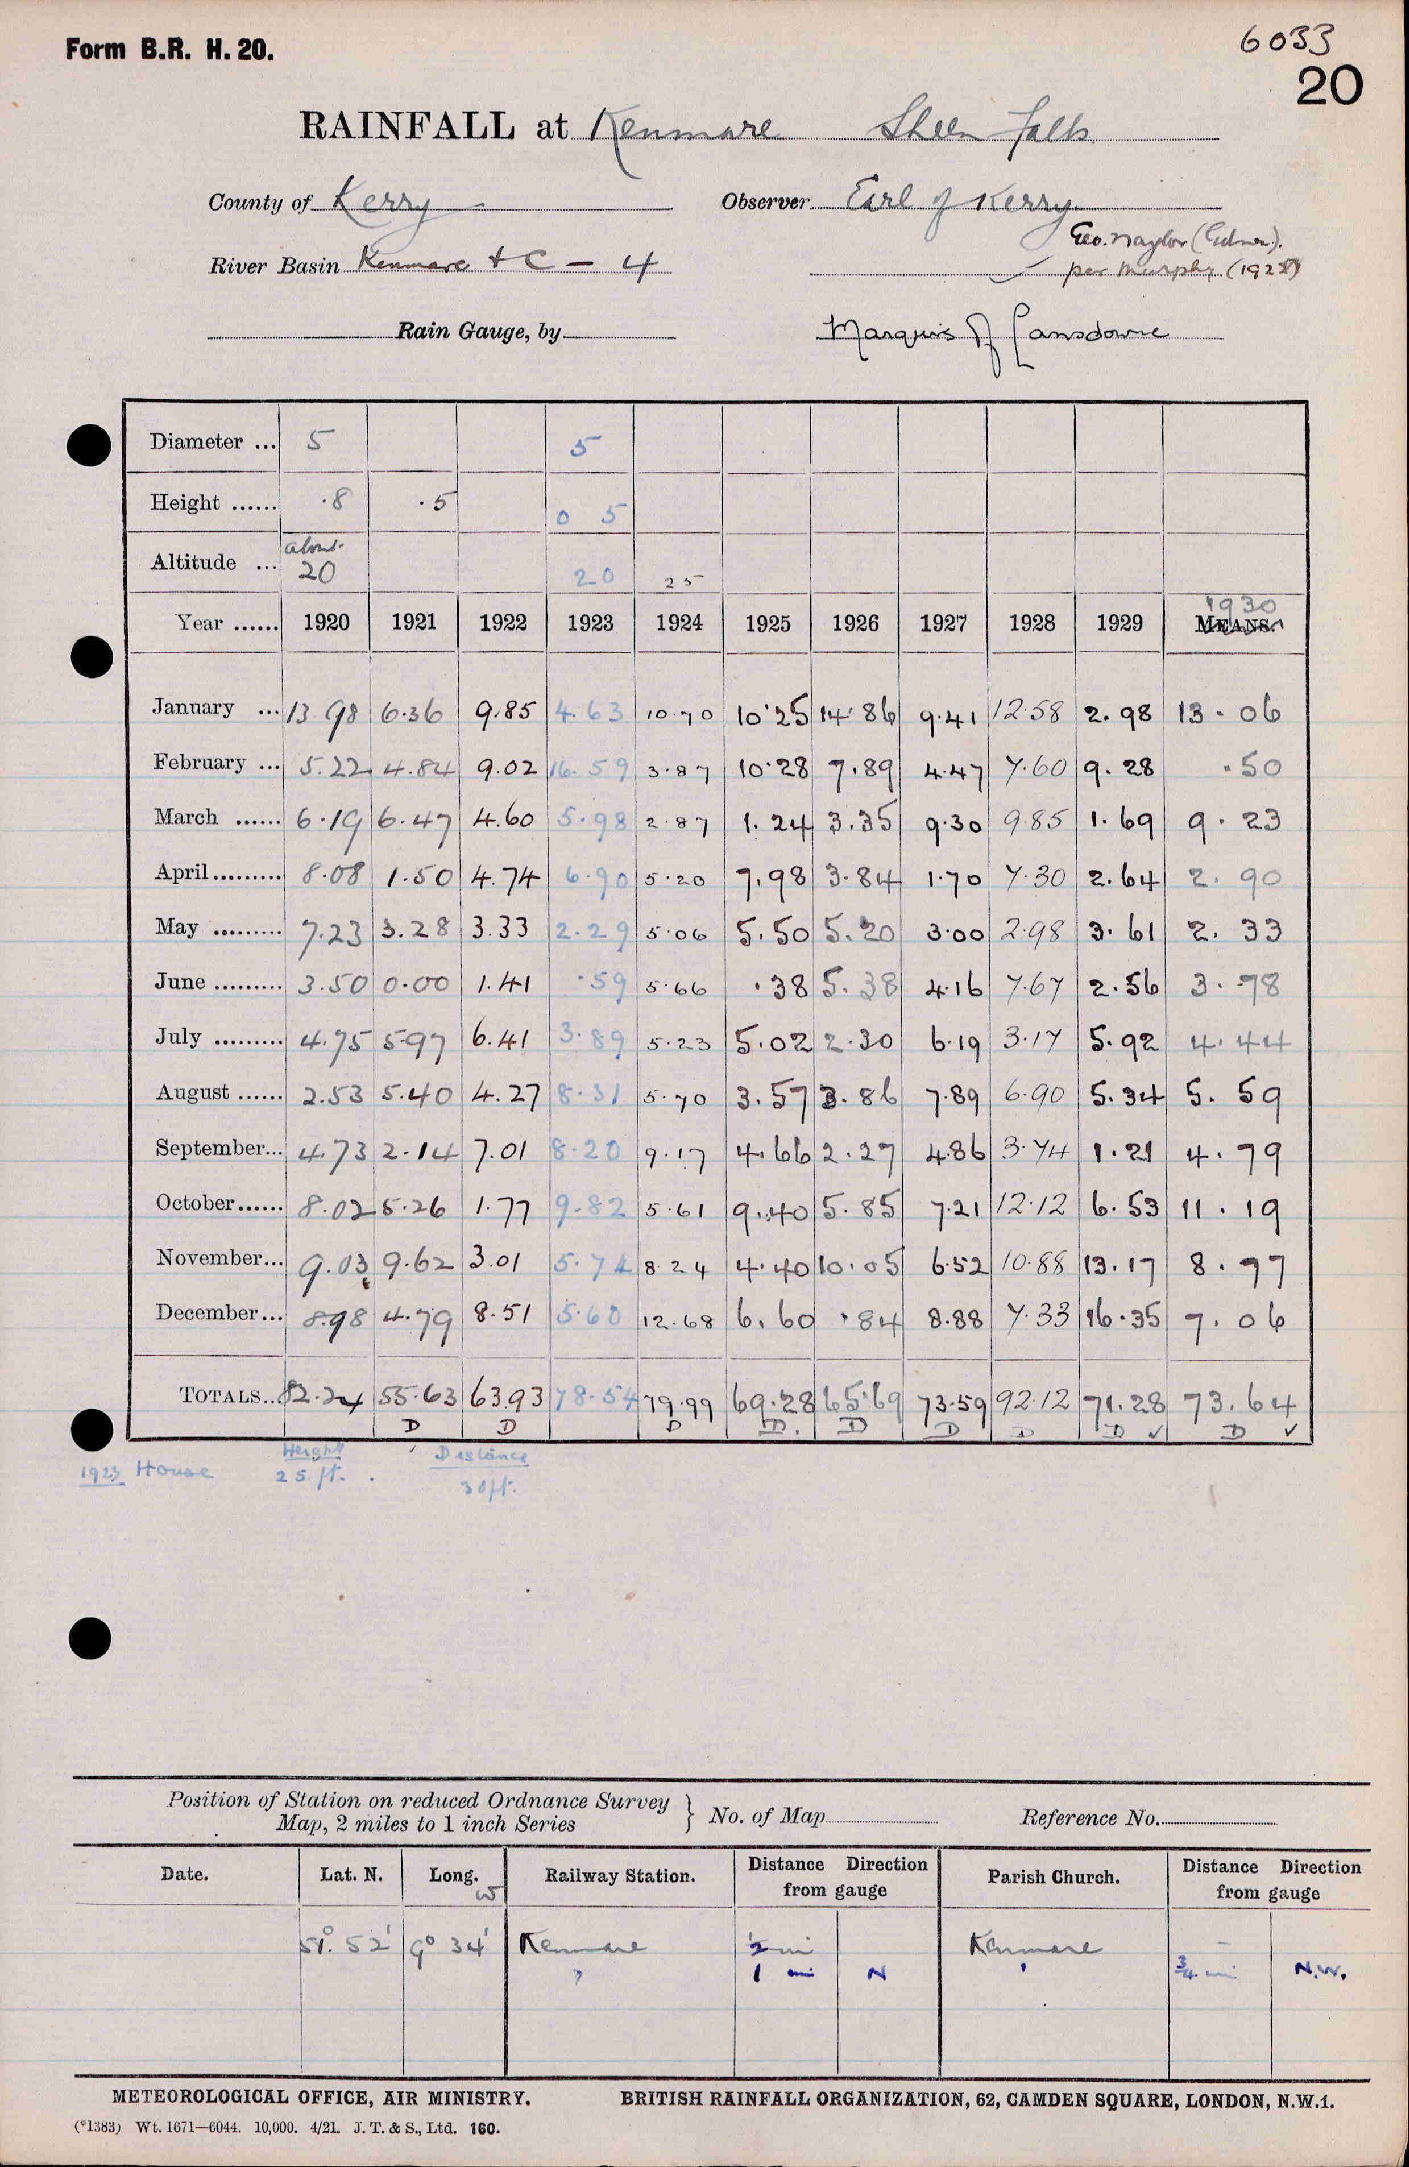 Form B.R. H. 20.
6033
20
RAINFALL at Kenmare Sheen Falls
County of Kerry Observer Earl of Kerry
Geo. Naylor (Gdner).
River Basin Kenmare + C - 4 per Murphy (1928)
Rain Gauge, by Marquis of Lansdowne
Diameter ... 5 5
Height ...... .8 .5 0 5
Altitude ... about 20 20 25
Year ...... 1920 1921 1922 1923 1924 1925 1926 1927 1928 1929 1930 MEANS.
January ... 13.98 6.36 9.85 4.63 10.70 10.25 14.86 9.41 12.58 2.98 13.06
February ... 5.22 4.84 9.02 16.59 3.87 10.28 7.89 4.47 7.60 9.28 .50
March ...... 6.19 6.47 4.60 5.98 2.87 1.24 3.35 9.30 9.85 1.69 9.23
April ......... 8.08 1.50 4.74 6.90 5.20 7.98 3.84 1.70 7.30 2.64 2.90
May ......... 7.23 3.28 3.33 2.29 5.06 5.50 5.20 3.00 2.98 3.61 2.33
June ......... 3.50 0.00 1.41 .59 5.66 .38 5.38 4.16 7.67 2.56 3.78
July ......... 4.75 5.97 6.41 3.89 5.23 5.02 2.30 6.19 3.17 5.92 4.44
August ...... 2.53 5.40 4.27 8.31 5.70 3.57 3.86 7.89 6.90 5.34 5.59
September... 4.73 2.14 7.01 8.20 9.17 4.66 2.27 4.86 3.74 1.21 4.79
October ...... 8.02 5.26 1.77 9.82 5.61 9.40 5.85 7.21 12.12 6.53 11.19
November... 9.03 9.62 3.01 5.74 8.24 4.40 10.05 6.52 10.88 13.17 8.97
December... 8.98 4.79 8.51 5.60 12.68 6.60 .84 8.88 7.33 16.35 7.06
TOTALS.. 82.24 55.63 63.93 78.54 79.99 69.28 65.69 73.59 92.12 71.28 73.64
D D D D. D D D D ✓ D ✓
Height Distance
1923 House 25 ft. 30 ft.
Position of Station on reduced Ordnance Survey
Map, 2 miles to 1 inch Series } No. of Map Reference No.
Date. Lat. N. Long. W Railway Station. Distance Direction from gauge Parish Church. Distance Direction from gauge
51° 52' 9° 34' Kenmare ½ mi Kenmare -
" 1 mi N " ¾ mi N.W.
METEOROLOGICAL OFFICE, AIR MINISTRY. BRITISH RAINFALL ORGANIZATION, 62, CAMDEN SQUARE, LONDON, N.W.1.
(*1383) Wt. 1671—6044. 10,000. 4/21. J. T. & S., Ltd. 160.